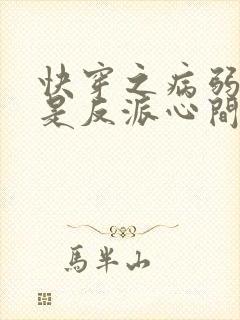 快穿之病弱
是反派心間
馬半山